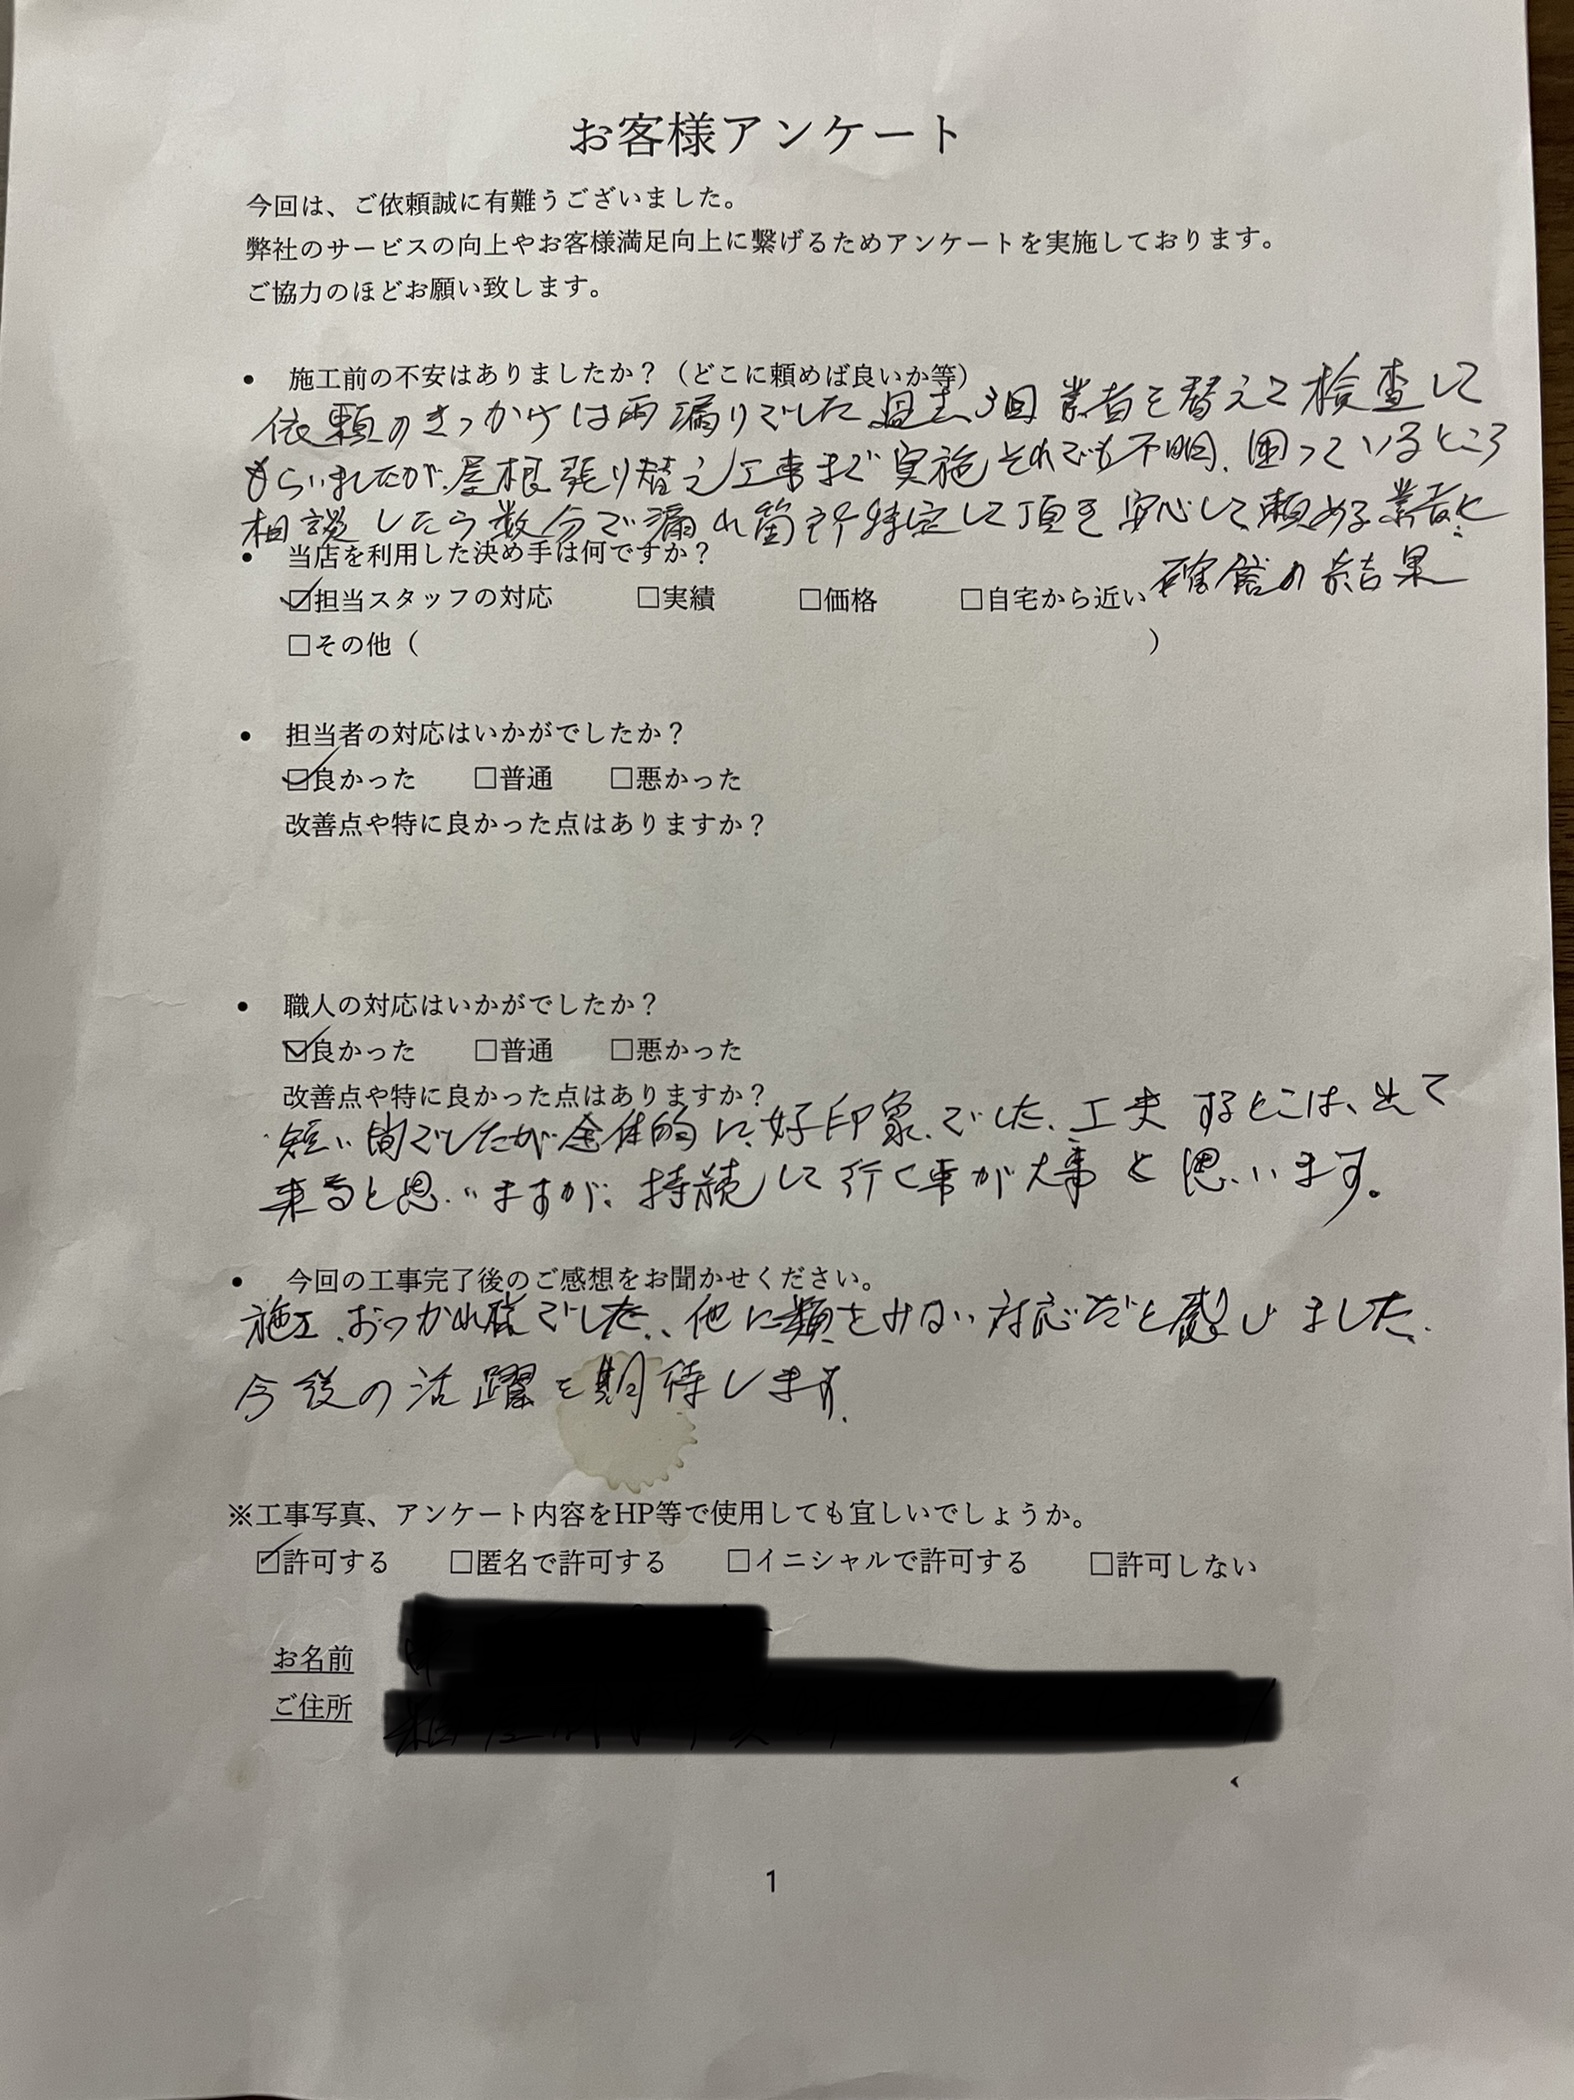 お客様アンケート
今回は、ご依頼誠に有難うございました。
弊社のサービスの向上やお客様満足向上に繋げるためアンケートを実施しております。
ご協力のほどお願い致します。
• 施工前の不安はありましたか？（どこに頼めば良いか等）
依頼のきっかけは雨漏りでした過去3回業者を替えて検査して
もらいましたが、屋根張り替え工事まで実施それでも不明、困っているところ
相談したら数分で漏れ箇所特定して頂き安心して頼める業者と
確信の結果
• 当店を利用した決め手は何ですか？
☑担当スタッフの対応 □実績 □価格 □自宅から近い
□その他（ ）
• 担当者の対応はいかがでしたか？
☑良かった □普通 □悪かった
改善点や特に良かった点はありますか？
• 職人の対応はいかがでしたか？
☑良かった □普通 □悪かった
改善点や特に良かった点はありますか？
短い間でしたが全体的に好印象でした、工夫するとこは、出て
来ると思いますが、持続して行く事が大事と思います。
• 今回の工事完了後のご感想をお聞かせください。
施工、おつかれ様でした、他に類をみない対応だと感じました、
今後の活躍を期待します。
※工事写真、アンケート内容をHP等で使用しても宜しいでしょうか。
☑許可する □匿名で許可する □イニシャルで許可する □許可しない
お名前
ご住所
1